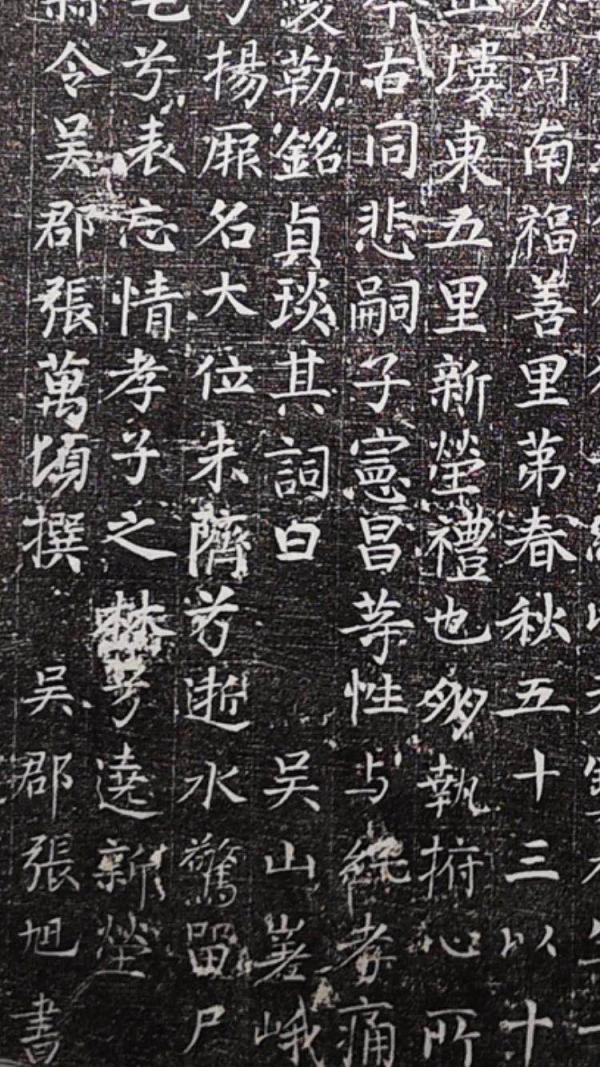 河南福善里苐春秋五十三以十
塿東五里新塋禮也朋執拊心所
右同悲嗣子憲昌等性与純孝痛
勒銘貞琰其詞曰 吳山嵳峨
揚厥名大位未隮兮逝水驚留尸
兮表忘情孝子之兮遶新塋
令吳郡張萬頃撰 吳郡張旭書